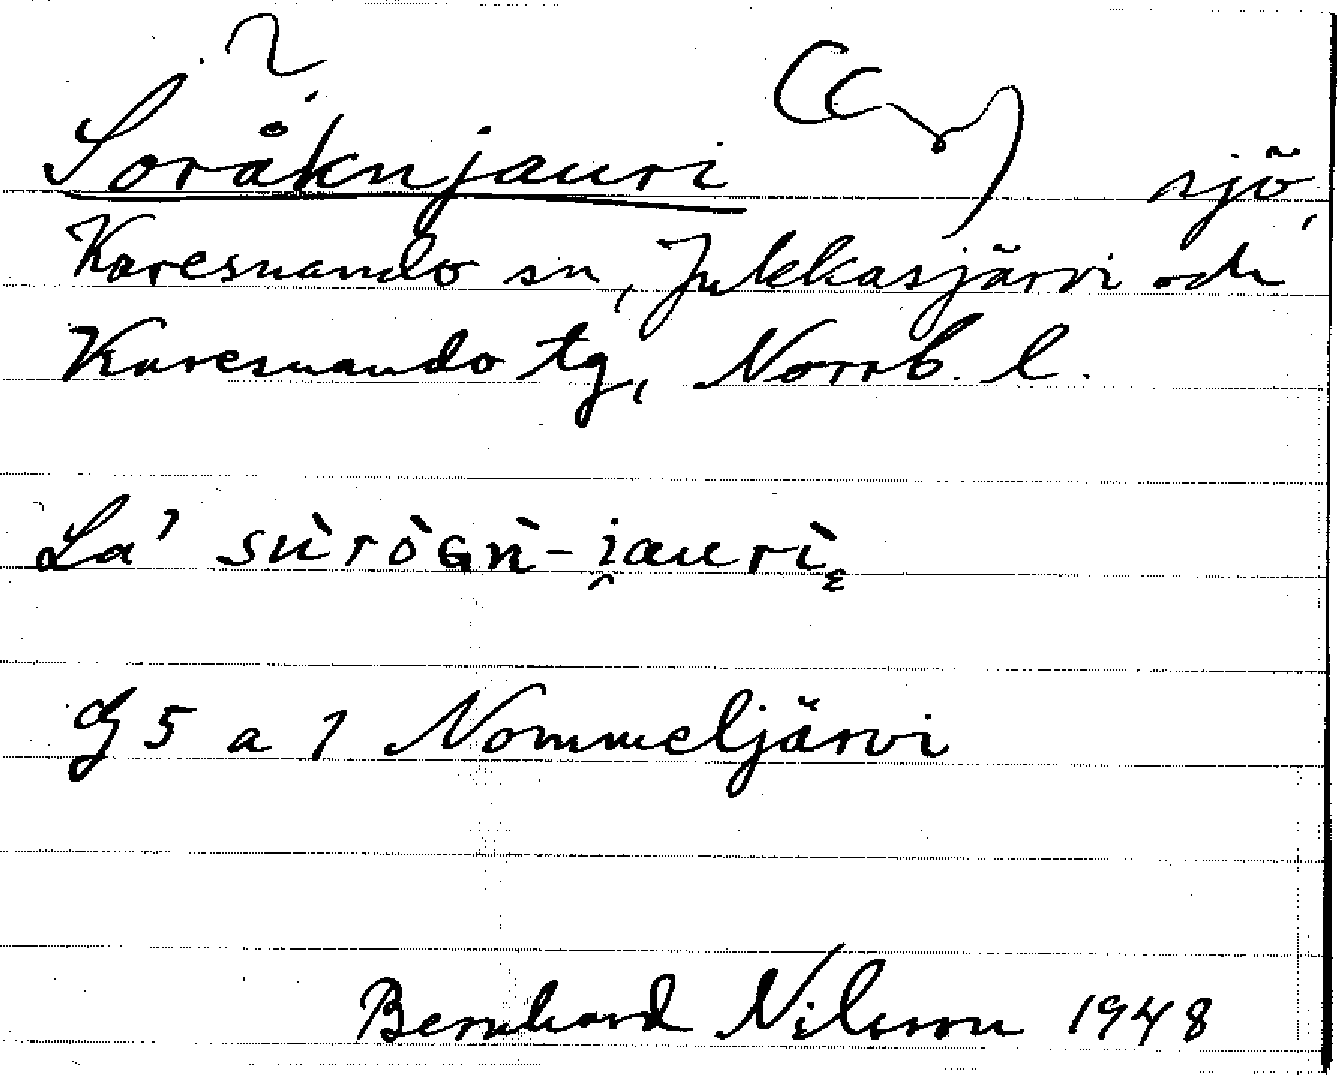 ?
Soråknjauri sjö,
Karesuando sn, Jukkasjärvi och
Karesuando tg, Norrb. l.
La' sùròɢǹ-i̯aurì
G5 a 1 Nommeljärvi
Bernhard Nilsson 1948